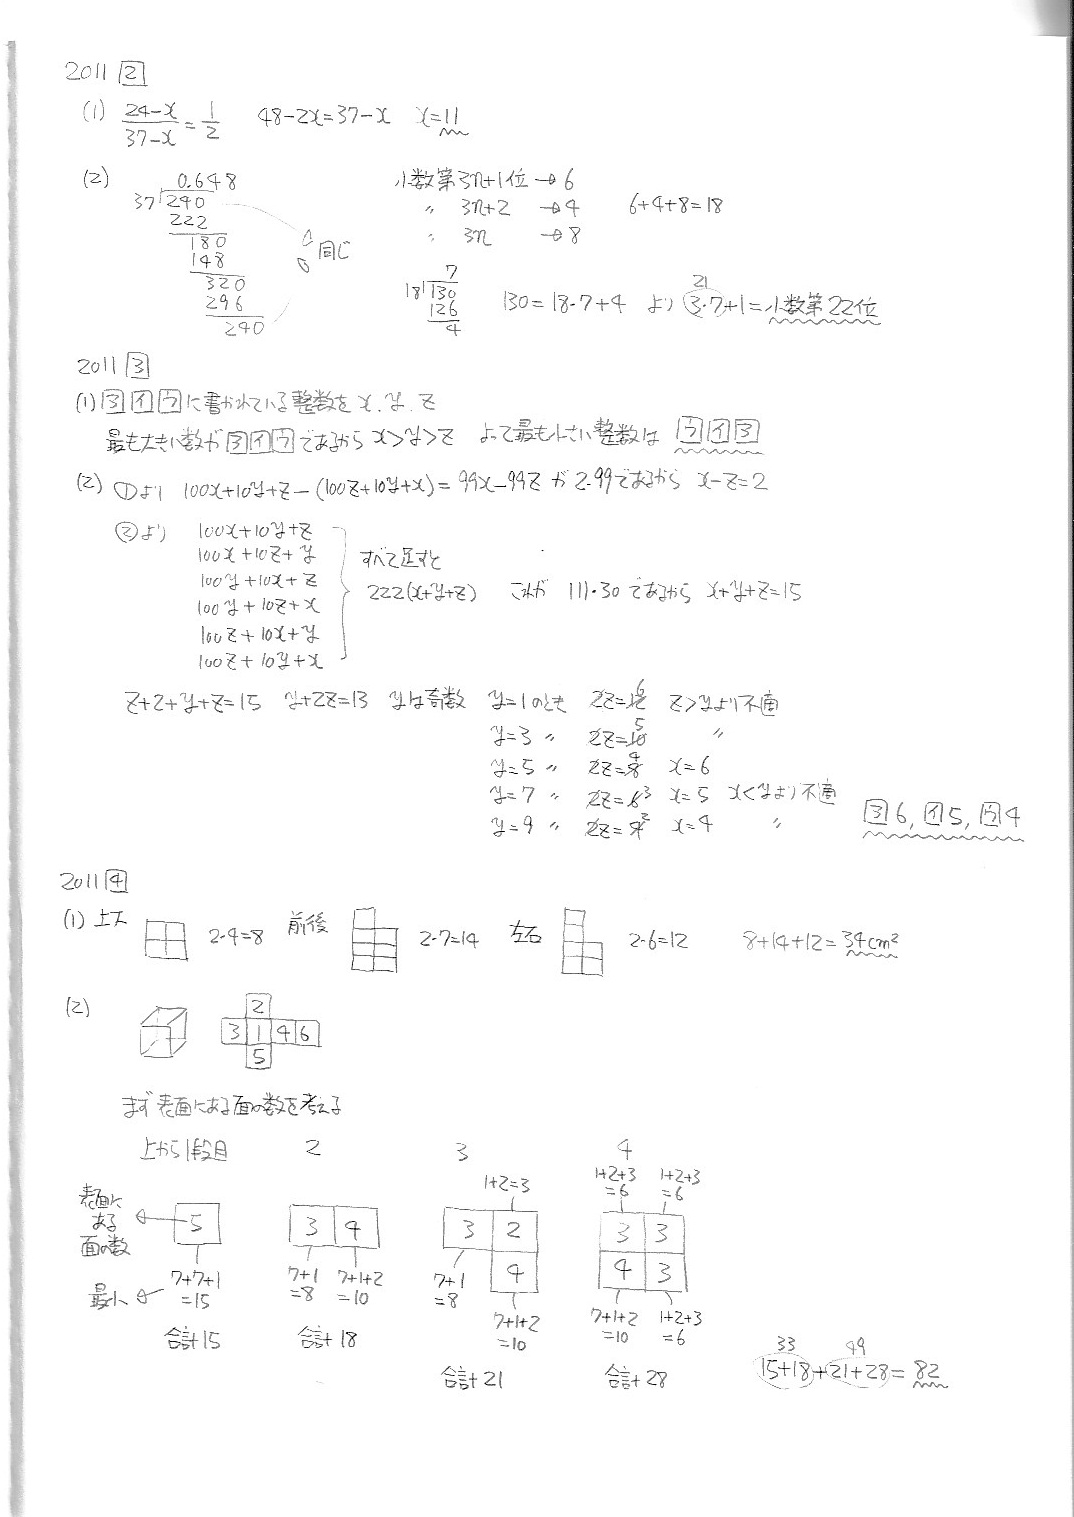 2011 2
(1) 24-x/37-x = 1/2 48-2x=37-x x=11
(2) 0.648 小数第3n+1位→6
37 240 〃 3n+2 →4 6+4+8=18
222 〃 3n →8
180 同じ
148 7
320 18 130 130=18・7+4 より 3・7+1=小数第22位
296 126 21
240 4
2011 3
(1) ア イ ウ に書かれている整数を x, y, z
最も大きい数が ア イ ウ であるから x>y>z よって最も小さい整数は ウ イ ア
(2) ①より 100x+10y+z-(100z+10y+x)=99x-99z が 2・99であるから x-z=2
②より 100x+10y+z
100x+10z+y すべて足すと
100y+10x+z 222(x+y+z) これが 111・30 であるから x+y+z=15
100y+10z+x
100z+10x+y
100z+10y+x
z+2+y+z=15 y+2z=13 yは奇数 y=1のとき 2z=12 6 z>yより不適
y=3 〃 2z=10 5 〃
y=5 〃 2z=8 4 x=6
y=7 〃 2z=6 3 x=5 x<yより不適
y=9 〃 2z=4 2 x=4 〃 ア6, イ5, ウ4
2011 4
(1) 上下 2・4=8 前後 2・7=14 左右 2・6=12 8+14+12=34cm²
(2) 2
3 1 4 6
5
まず表面にある面の数を考える
上から1段目 2 3 4
1+2=3 1+2+3=6 1+2+3=6
表面にある面の数 5 3 4 3 2 3 3
4 4 3
最小 7+7+1=15 7+1=8 7+1+2=10 7+1=8 7+1+2=10 7+1+2=10 1+2+3=6
合計15 合計18 合計21 合計28
33 49
15+18+21+28=82